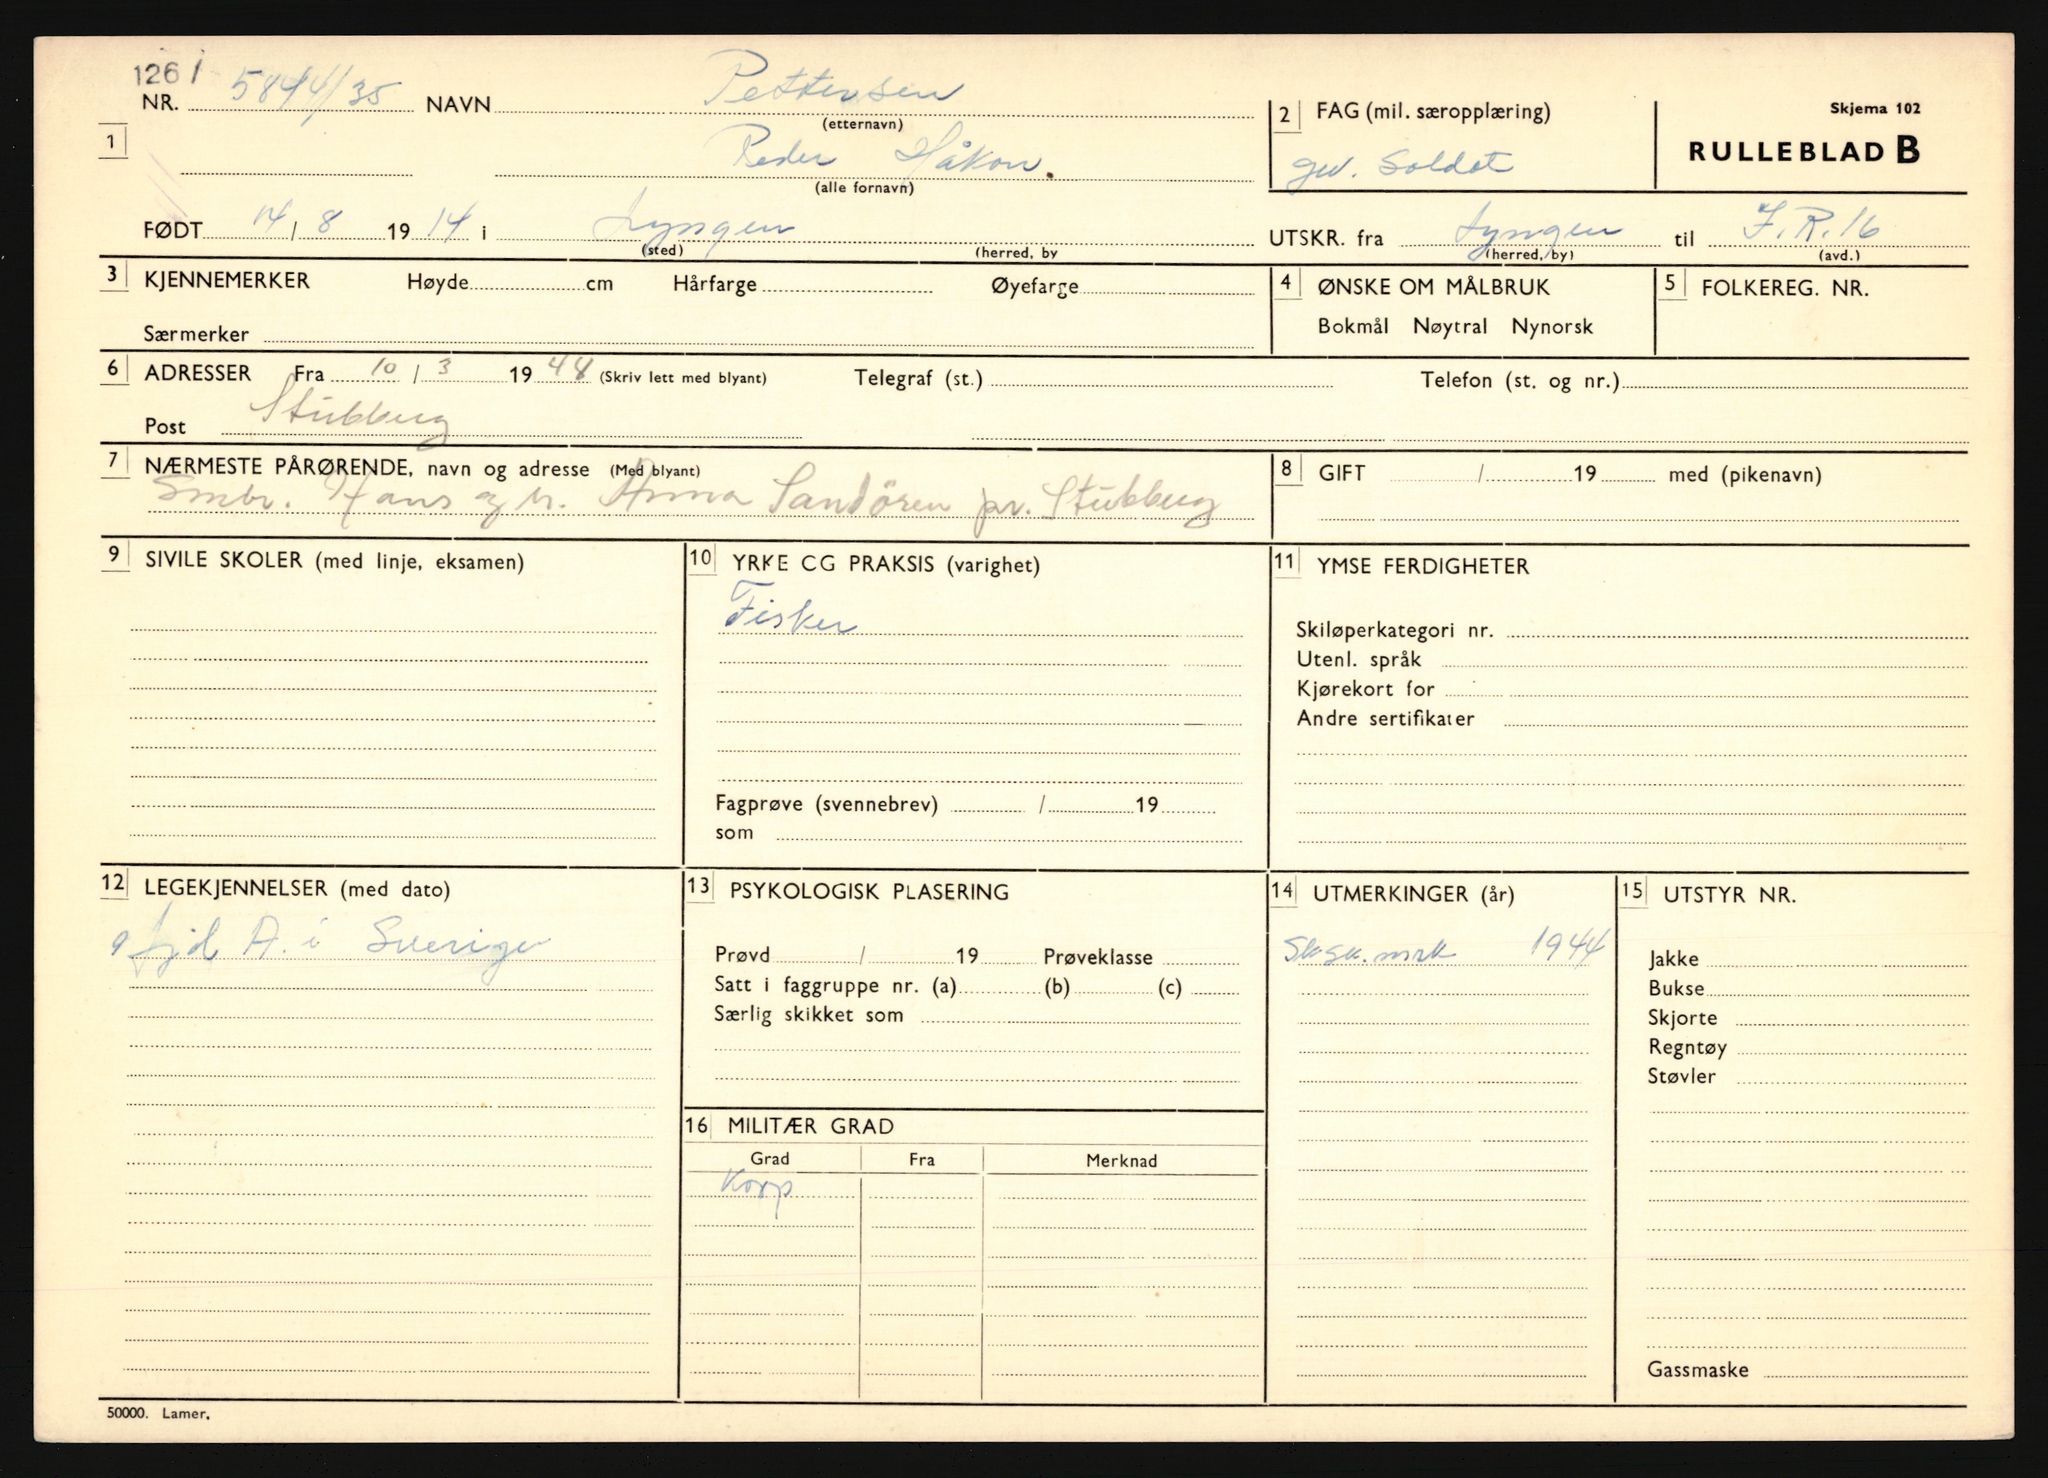 1261
NR. 5844/35 NAVN Pettersen
(etternavn)
1 Peder Håkon.
(alle fornavn)
2 FAG (mil. særopplæring)
gev. Soldat
Skjema 102
RULLEBLAD B
FØDT 14 / 8 1914 i Lyngen
(sted) (herred, by
UTSKR. fra Lyngen til I.R.16
(herred, by) (avd.)
3 KJENNEMERKER Høyde cm Hårfarge Øyefarge
Særmerker
4 ØNSKE OM MÅLBRUK
Bokmål Nøytral Nynorsk
5 FOLKEREG. NR.
6 ADRESSER Fra 10 / 3 1948 (Skriv lett med blyant) Telegraf (st.) Telefon (st. og nr.)
Post Stubbeng
7 NÆRMESTE PÅRØRENDE, navn og adresse (Med blyant)
Smbr. Hans og h. Anna Sandören pr. Stubbeng
8 GIFT / 19 med (pikenavn)
9 SIVILE SKOLER (med linje, eksamen)
10 YRKE CG PRAKSIS (varighet)
Fisker
Fagprøve (svennebrev) / 19
som
11 YMSE FERDIGHETER
Skiløperkategori nr.
Utenl. språk
Kjørekort for
Andre sertifikater
12 LEGEKJENNELSER (med dato)
gfjd A. i Sverige
13 PSYKOLOGISK PLASERING
Prøvd / 19 Prøveklasse
Satt i faggruppe nr. (a) (b) (c)
Særlig skikket som
14 UTMERKINGER (år)
Sk.sk.mrk 1944
15 UTSTYR NR.
Jakke
Bukse
Skjorte
Regntøy
Støvler
Gassmaske
16 MILITÆR GRAD
Grad Fra Merknad
Korp
50000. Lamer.